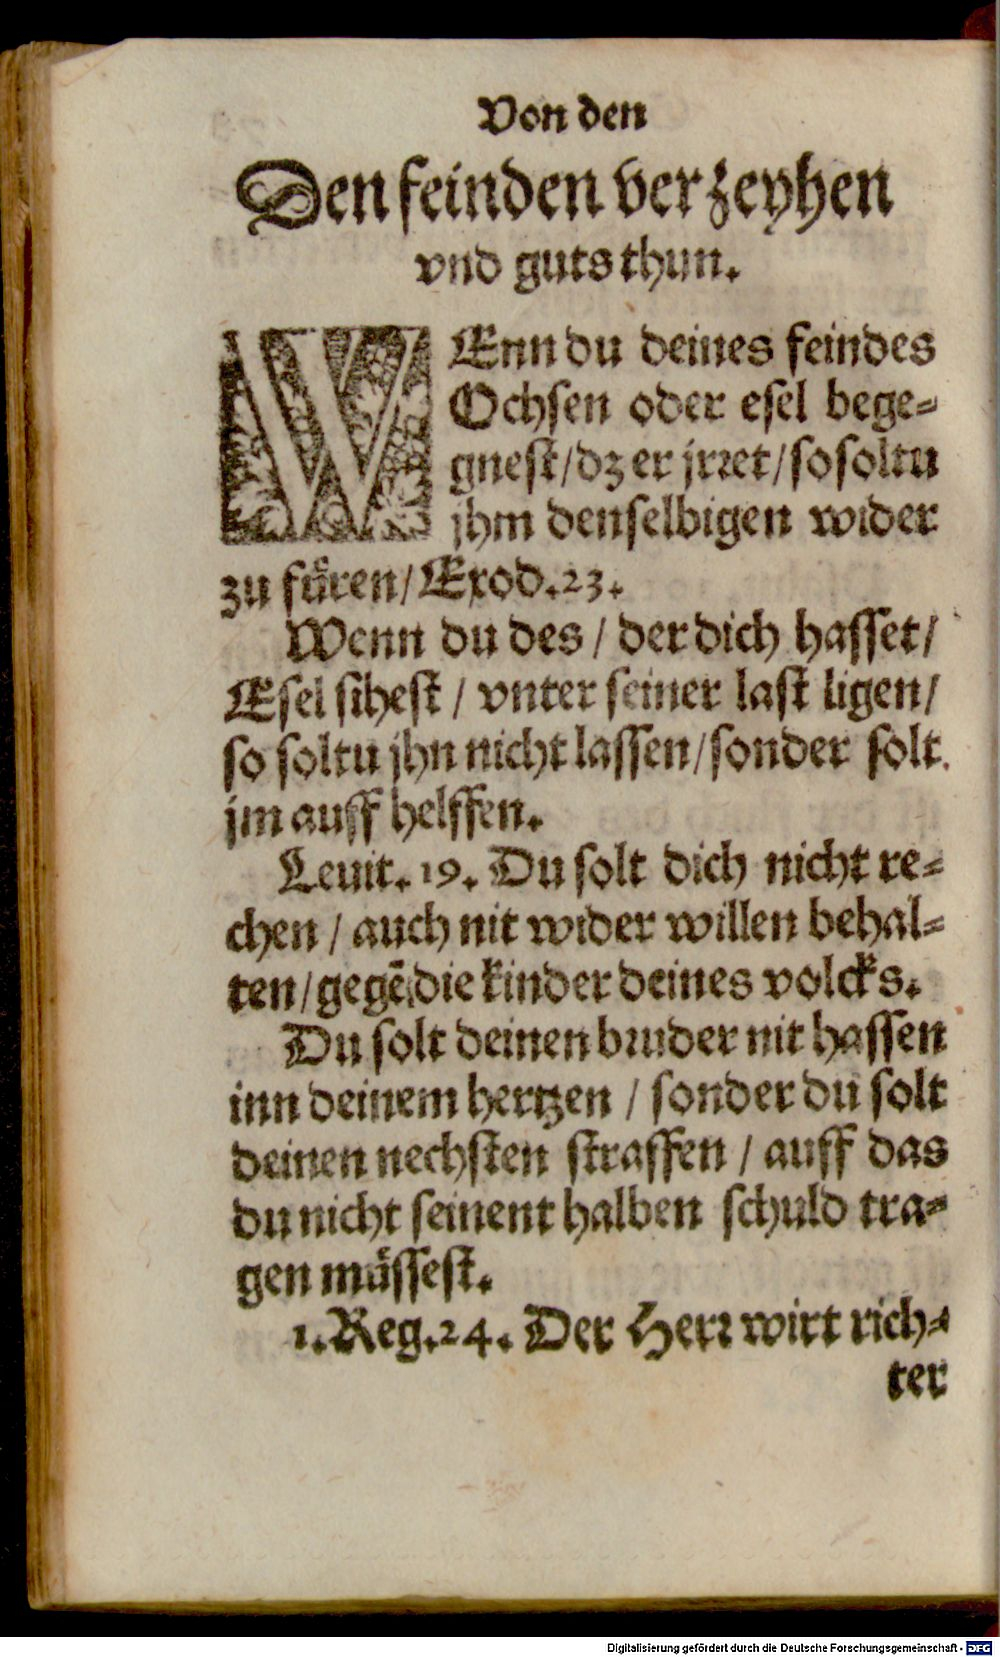 Von den
Den feinden verzeyhen
vnd guts thun.
WEnn du deines feindes
Ochsen oder esel bege=
gnest/dz er jrret/so soltu
jhm denselbigen wider
zu fuͤren/Exod.23.
Wenn du des/der dich hasset/
Esel sihest/vnter seiner last ligen/
so soltu jhn nicht lassen/sonder solt
jm auff helffen.
Leuit.19. Du solt dich nicht re=
chen/auch nit wider willen behal=
ten/gegē die kinder deines volcks.
Du solt deinen bruder nit hassen
inn deinem hertzen/sonder du solt
deinen nechsten straffen/auff das
du nicht seinent halben schuld tra=
gen muͤssest.
1.Reg.24. Der Herr wirt rich=
ter
Digitalisierung gefördert durch die Deutsche Forschungsgemeinschaft - DFG